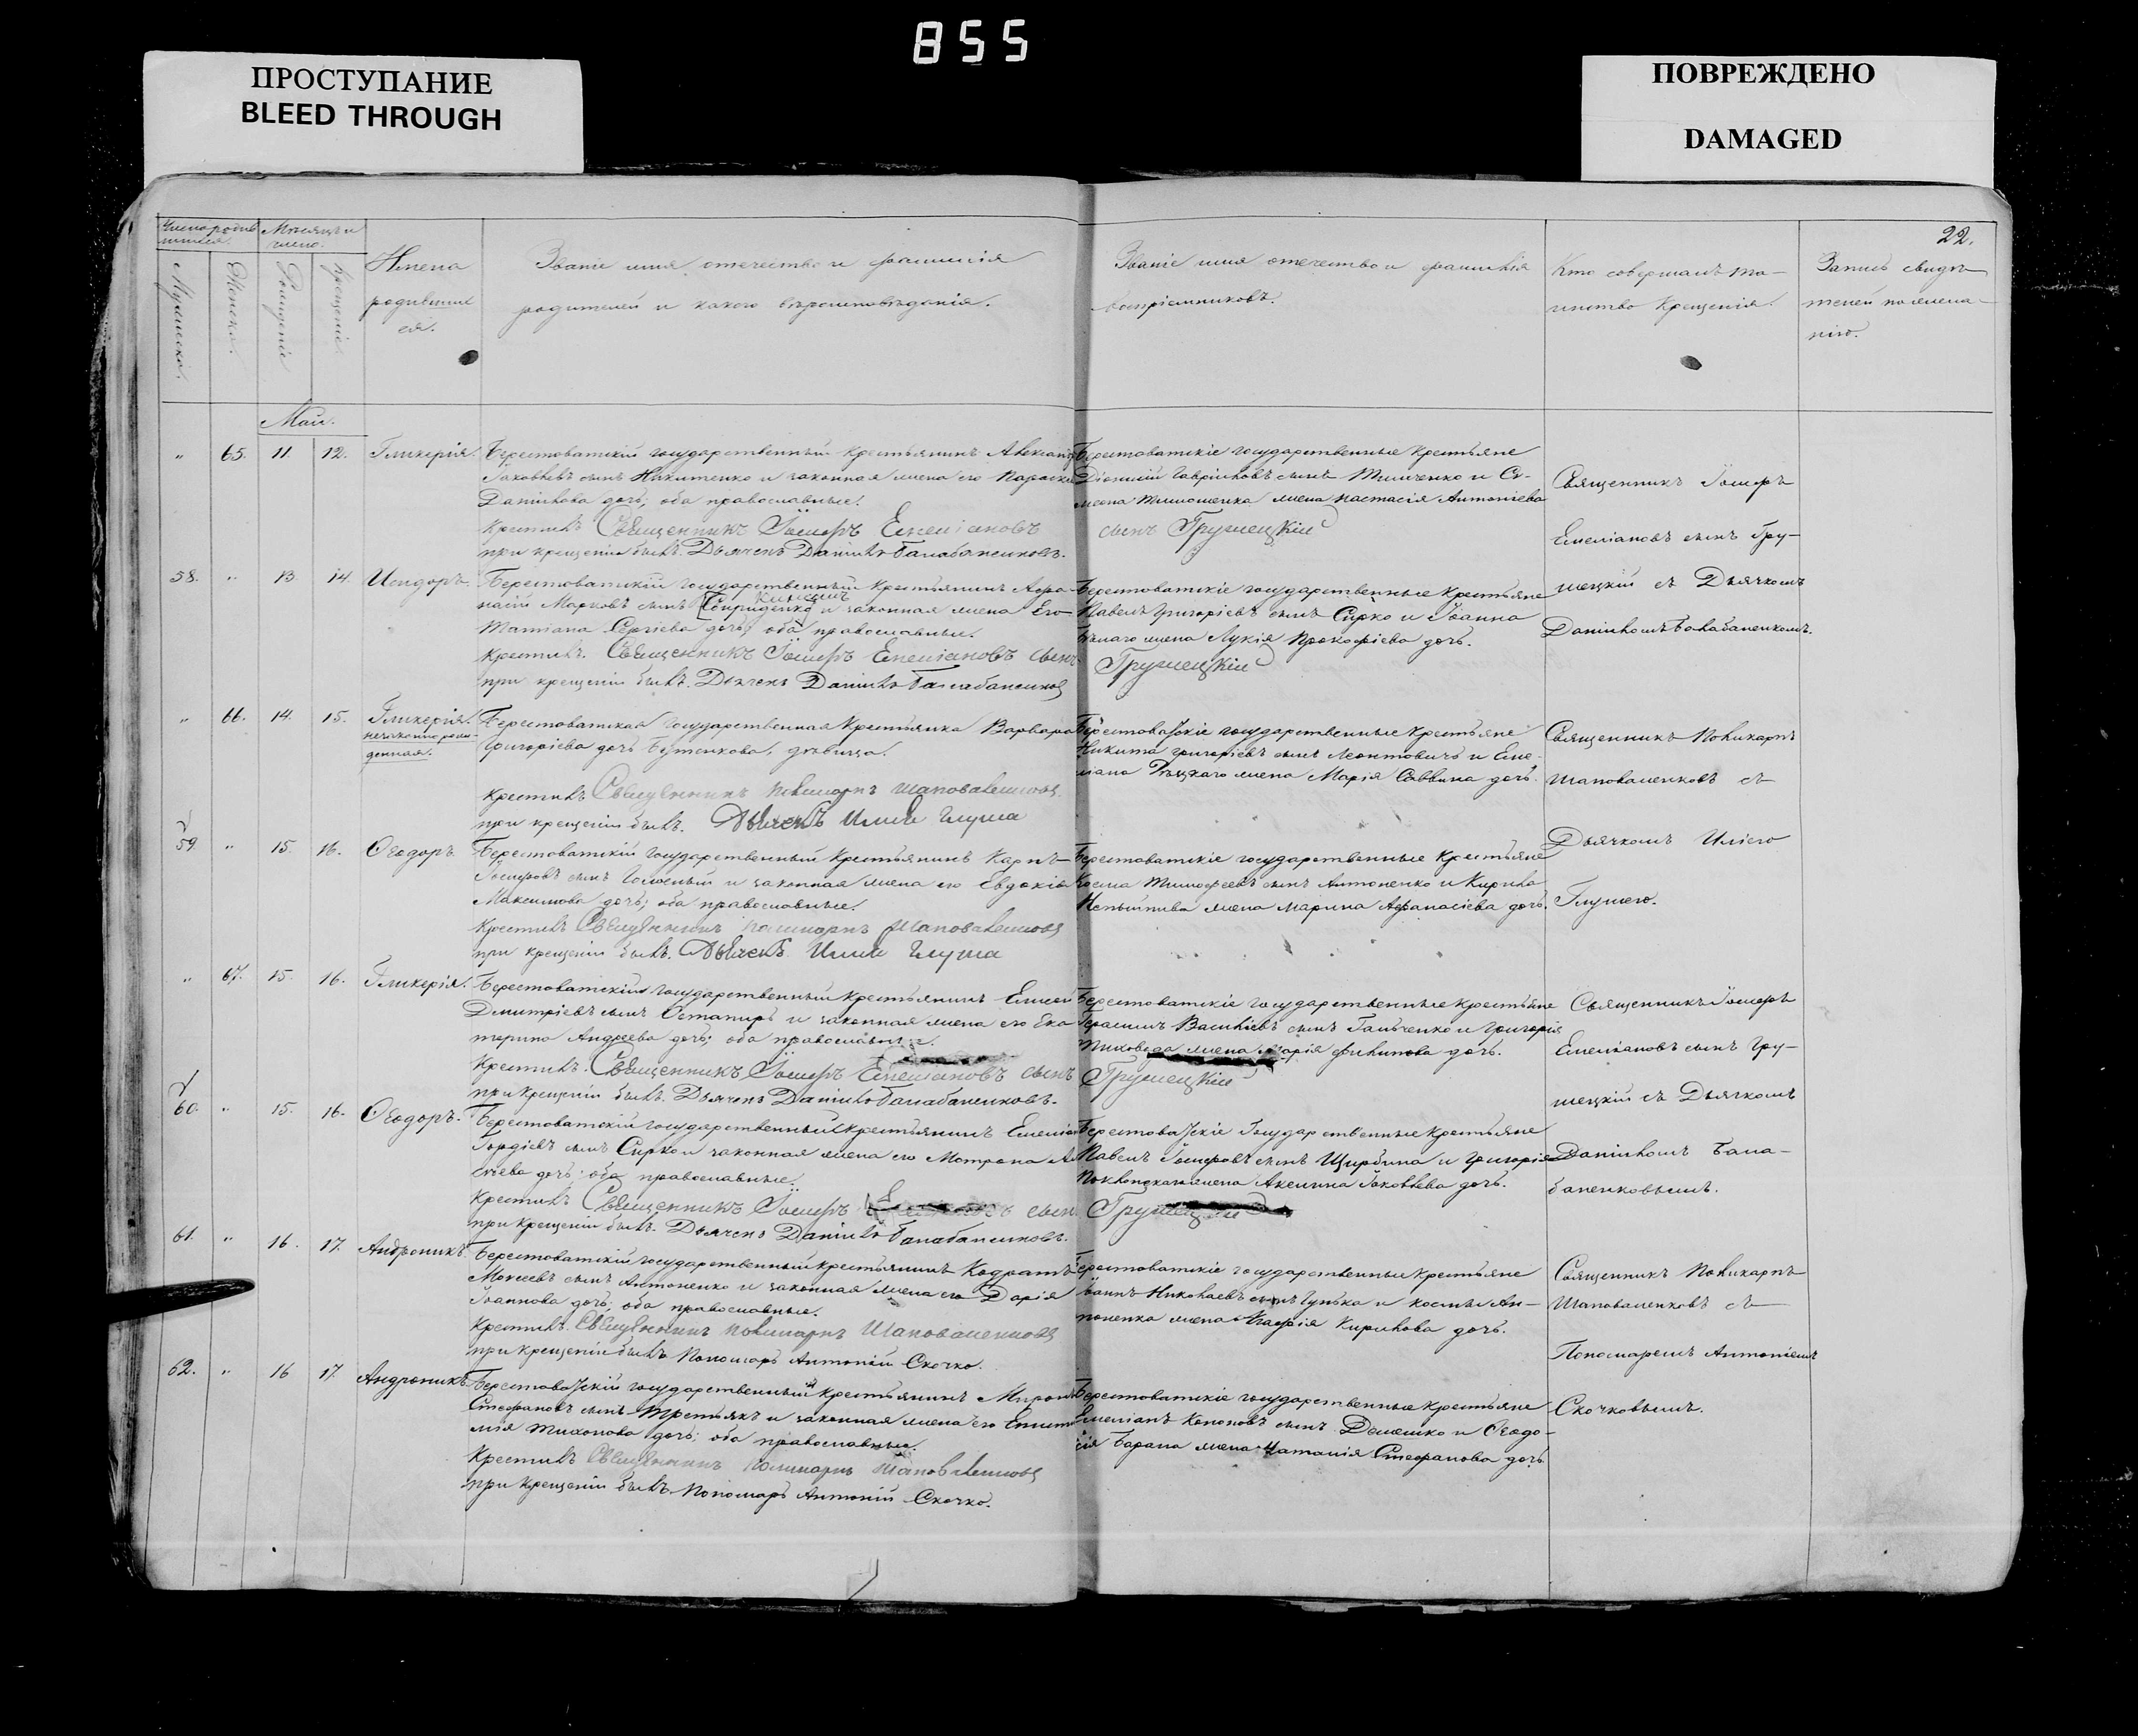 855
ПРОСТУПАНИЕ
BLEED THROUGH
ПОВРЕЖДЕНО
DAMAGED
22.
Число родив
шихся.
Мѣсяцъ и
число.
Мужескаго.
Женска.
Рожденіе
Крещеніе
Имена
родивших
ся.
Званіе имя, отечество и фамилія
родителей и какого вѣроисповѣданія.
Званіе имя отечество и фамилія
воспріемниковъ.
Кто совершалъ та-
инство крещенія.
Запись свидѣ-
телей по желан-
нію.
Маи.
" 65. 11. 12. Гликерія.
Берестоватскій государственный крестьянинъ Александ
Яковлевъ сынъ Никитенко и законная жена его Параске
Даніилова дочь; оба православные.
Крестилъ Священникъ Іосифъ Емеліановъ
при крещеніи былъ. Дьячекъ Даніилъ Балабаненковъ.
Берестоватскіе государственные крестьяне
Діонисій Гавріиловъ сынъ Тимченко и Си-
меона Тимошенка жена Настасія Антоніева
сынъ Грушецкій
Священникъ Іосифъ
Емеліановъ сынъ Гру-
шецкій съ Дьячкомъ
Даніиломъ Балабаненкомъ.
58. " 13. 14. Исидоръ.
Берестоватскій государственный крестьянинъ Афа-
насій Марковъ сынъ Спириденко и законная жена Его
Татіана Сергіева дочь; оба православные.
Крестилъ. Священникъ Іосифъ Емеліановъ сынъ
при крещеніи былъ. Дьячекъ Даніилъ Балабаненковъ
Берестоватскіе государственные крестьяне
Павелъ Григоріевъ сынъ Сирко и Іоанна
Бѣлаго жена Лукія Прокофіева дочь.
Грушецкій
" 66. 14. 15. Гликерія.
незаконнорож-
денная.
Берестоватская государственная крестьянка Варвара
Григоріева дочь Бутенкова, дѣвица.
Крестилъ Священникъ Поликарпъ Шаповаленковъ
при крещеніи былъ. Дьячекъ Илія Глуша
Берестоватскіе государственные крестьяне
Никита Григоріевъ сынъ Леонтовичъ и Еме-
ліана жена Марія Саввина дочь.
Священникъ Поликарпъ
Шаповаленковъ съ
Дьячкомъ Иліею
Глушею.
59. " 15. 16. Ѳеодоръ.
Берестоватскій государственный крестьянинъ Карпъ
Іосифовъ сынъ и законная жена его Евдокія
Максимова дочь; оба православные.
Крестилъ Священникъ Поликарпъ Шаповаленковъ
при крещеніи былъ. Дьячекъ Илія Глуша
Берестоватскіе государственные крестьяне
Косма Тимофеевъ сынъ Антоненко и Кирила
Непыйпива жена Марина Афанасіева дочь.
" 67. 15. 16. Гликерія.
Берестоватскій государственный крестьянинъ Елисей
Димитріевъ сынъ Остапиръ и законная жена его Ека
терина Андреева дочь; оба православные.
Крестилъ. Священникъ Іосифъ Емеліановъ сынъ
при крещеніи былъ. Дьячекъ Даніилъ Балабаненковъ.
Берестоватскіе государственные крестьяне
Герасимъ Василіевъ сынъ Гальченко и Григорія
Тиховода жена Марія Филипова дочь.
Грушецкій
Священникъ Іосифъ
Емеліановъ сынъ Гру-
шецкій съ Дьячкомъ
Даніиломъ Бала-
баненковымъ.
60. " 15. 16. Ѳеодоръ.
Берестоватскій государственный крестьянинъ Емеліан
Гордіевъ сынъ Сирко и законная жена его Мотрона
дочь; оба православные.
Крестилъ Священникъ Іосифъ сын
при крещеніи былъ. Дьячекъ Даніилъ Балабаненковъ.
Берестоватскіе Государственные крестьяне
Павелъ Іосифовъ сынъ Щирбина и Григорія
жена Акилина Яковлева дочь.
Грушецкій
61. " 16. 17. Андроникъ.
Берестоватскій государственный крестьянинъ Кодратъ
Моисеевъ сынъ Антоненко и законная жена его Дарія
Іоаннова дочь; оба православные.
Крестилъ. Священникъ Поликарпъ Шаповаленковъ
при крещеніи былъ Пономарь Антоній Скочко.
Берестоватскіе государственные крестьяне
Іоаннъ Николаевъ сынъ Гунька и Космы Ан-
тоненка жена Кирилова дочь.
Священникъ Поликарпъ
Шаповаленковъ съ
Пономаремъ Антоніемъ
Скочковымъ.
62. " 16 17 Андроникъ
Берестоватскій государственный крестьянинъ Миронъ
Стефановъ сынъ Третьякъ и законная жена его Евфи
мія Тихонова дочь; оба православные.
Крестилъ Священникъ Поликарпъ Шаповаленковъ
при крещеніи былъ Пономарь Антоній Скочко.
Берестоватскіе государственные крестьяне
Емеліанъ Кононовъ сынъ Демешко и Ѳеодо-
сія Барана жена Наталія Стефанова дочь